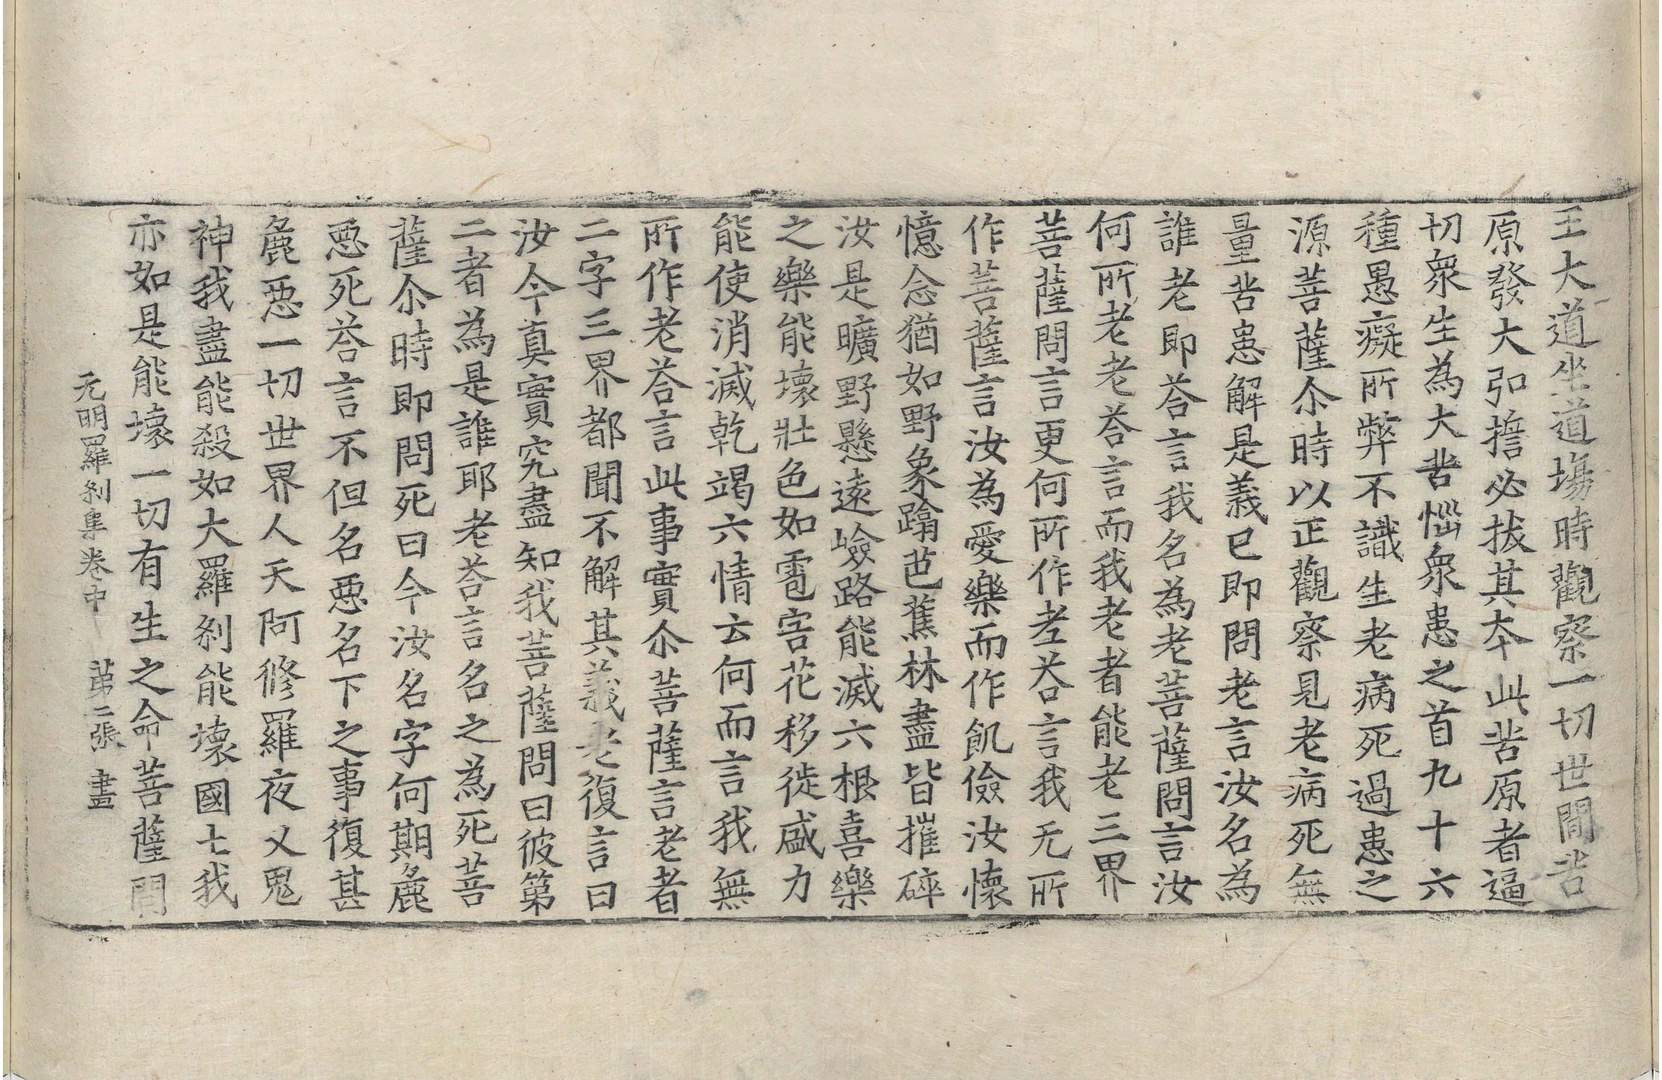 王大道坐道場時觀察一切世間苦
原發大弘擔必拔其夲此苦原者逼
切衆生為大苦惱衆患之首九十六
種愚癡所弊不識生老病死過患之
源菩薩尒時以正觀察見老病死無
量苦患解是義已即問老言汝名為
誰老即荅言我名為老菩薩問言汝
何所老老荅言而我老者能老三界
菩薩問言更何所作老荅言我无所
作菩薩言汝為愛樂而作飢儉汝懷
憶念猶如野象蹋芭蕉林盡皆摧碎
汝是曠野懸遠嶮路能滅六根喜樂
之樂能壞壯色如雹害花移徙盛力
能使消滅乾竭六情云何而言我無
所作老荅言此事實尒菩薩言老者
二字三界都聞不解其義老復言曰
汝今真實究盡知我菩薩問曰彼第
二者為是誰耶老荅言名之為死菩
薩尒時即問死曰今汝名字何期麁
惡死荅言不但名惡名下之事復甚
麁惡一切世界人天阿修羅夜叉鬼
神我盡能殺如大羅剎能壞國土我
亦如是能壞一切有生之命菩薩問
无明羅剎集卷中 苐二張 盡